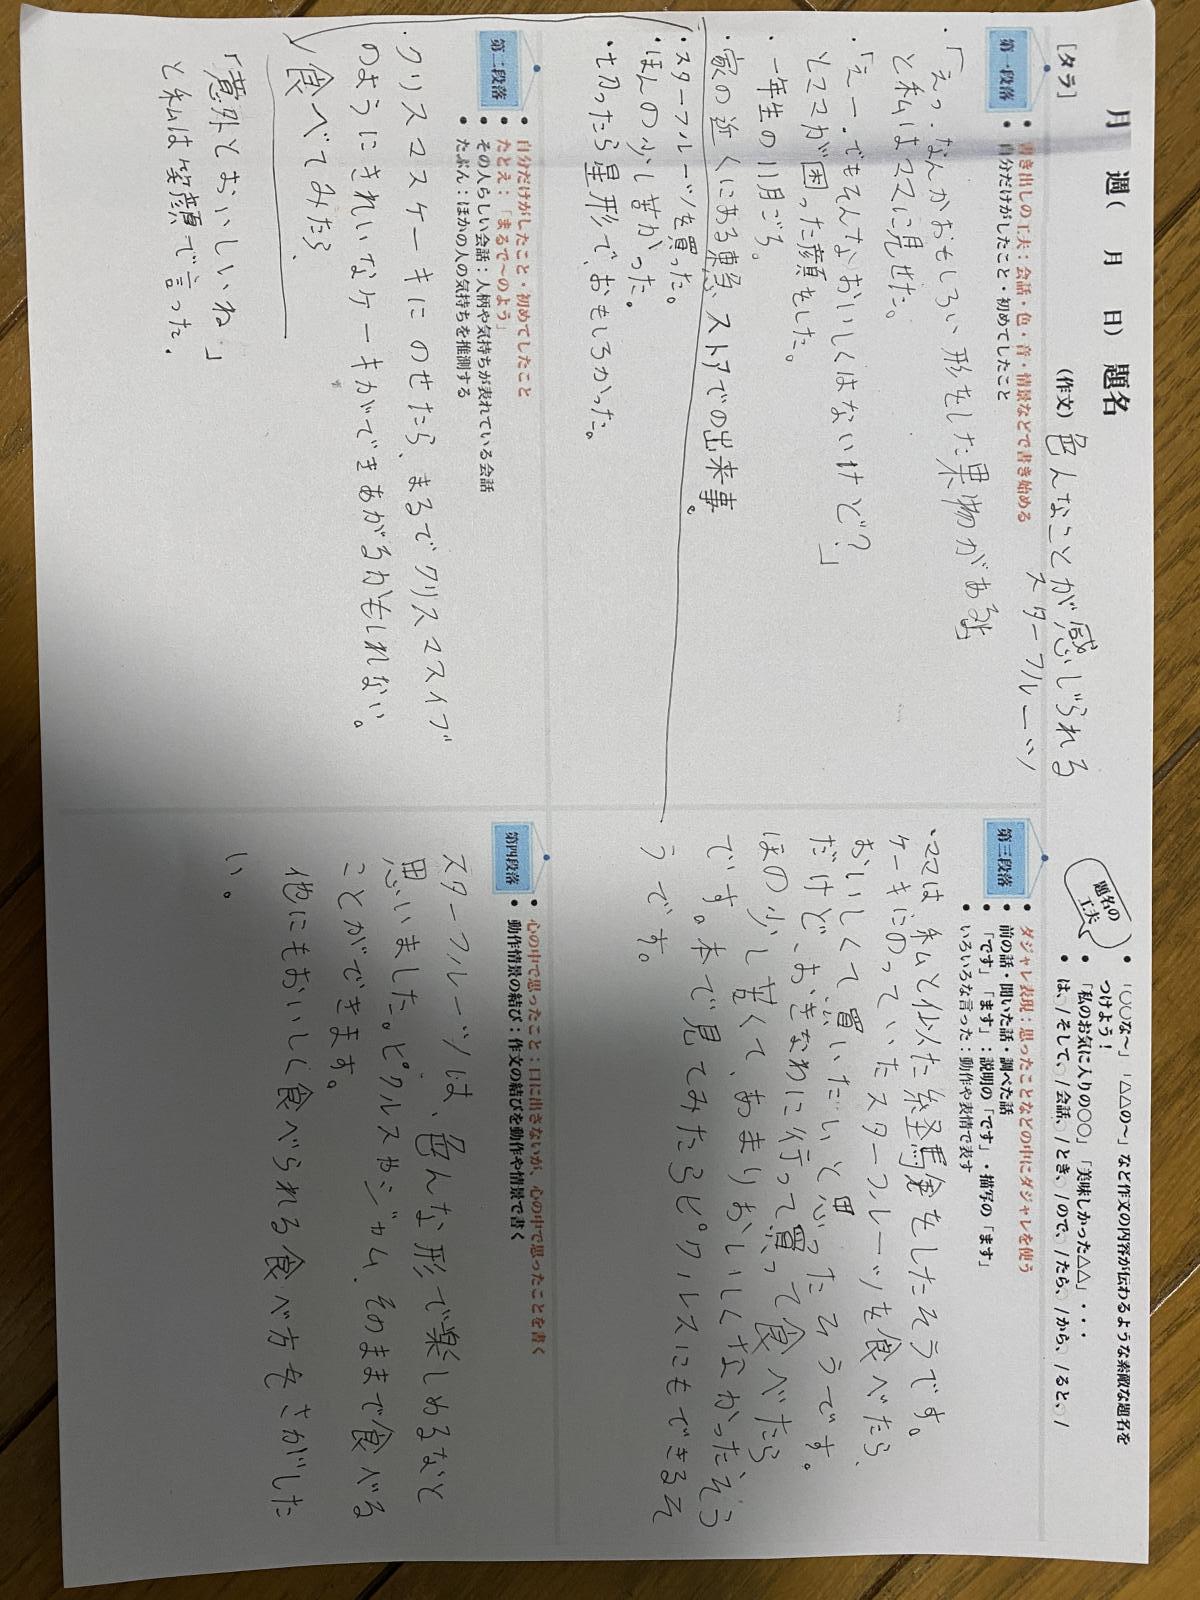 月　週(　月　日) 題名
[タラ]
(作文) 色んなことが感じられる
スターフルーツ
第一段落
• 書き出しの工夫：会話・色・音・情景などで書き始める
• 自分だけがしたこと・初めてしたこと
・「えっ、なんかおもしろい形をした果物がある」
と私はママに見せた。
・「えー、でもそんなおいしくはないけど？」
とママが困った顔をした。
・一年生の11月ごろ。
・家の近くにある東急ストアでの出来事。
・スターフルーツを買った。
・ほんの少し苦かった。
・切ったら星形で、おもしろかった。
第二段落
• 自分だけがしたこと・初めてしたこと
• たとえ：「まるで〜のよう」
• その人らしい会話：人柄や気持ちが表れている会話
• たぶん：ほかの人の気持ちを推測する
・クリスマスケーキにのせたら、まるでクリスマスイブ
のようにきれいなケーキができあがるかもしれない。
食べてみたら、
「意外とおいしいね」
と私は笑顔で言った。
題名の
工夫
• 「○○な〜」「△△の〜」など作文の内容が伝わるような素敵な題名を
つけよう！
• 「私のお気に入りの○○」「美味しかった△△」・・・
• は、/そして、/会話、/とき、/ので、/たら、/から、/ると、/
第三段落
• ダジャレ表現：思ったことなどの中にダジャレを使う
• 前の話・聞いた話・調べた話
• 「です」「ます」：説明の「です」・描写の「ます」
• いろいろな言った：動作や表情で表す
・ママは私と似た経験をしたそうです。
ケーキにのっていたスターフルーツを食べたら、
おいしくて買いたいと思ったそうです。
だけど、おきなわに行って買って食べたら
ほの少し苦くて、あまりおいしくなかったそう
です。本で見てみたらピクルスにもできるそ
うです。
第四段落
• 心の中で思ったこと：口に出さないが、心の中で思ったことを書く
• 動作情景の結び：作文の結びを動作や情景で書く
スターフルーツは、色んな形で楽しめるなと
思いました。ピクルスやジャム、そのままで食べる
ことができます。
他にもおいしく食べられる食べ方をさがした
い。